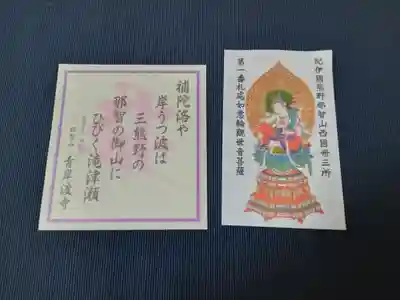 補陀洛や
岸うつ波は
三熊野の
那智の御山に
ひびく滝津瀬
青岸渡寺
紀伊國熊野那智山西國卅三所
第一番札所如意輪觀世音菩薩